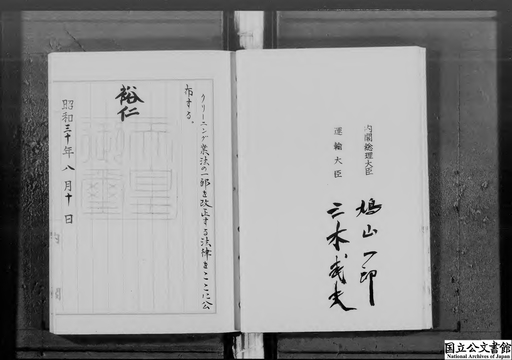 内閣総理大臣
鳩山一郎
運輸大臣
三木武夫
クリーニング業法の一部を改正する法律をここに公
布する。
裕仁
昭和三十年八月十日
国立公文書館
National Archives of Japan